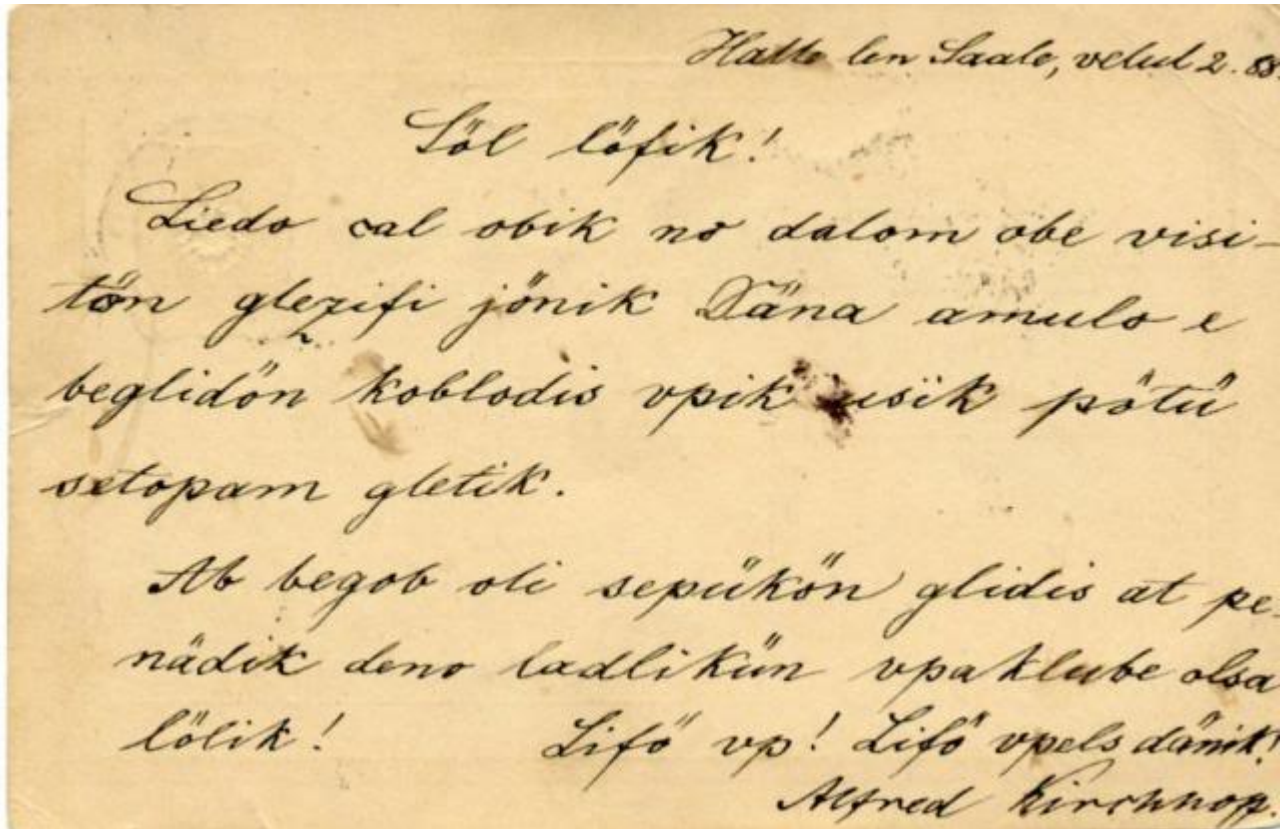 Halle len Saale, velul 2. 88.
Söl löfik!
Liedo cal obik no dalom obe visi-
tön glezifi jönik Däna amulo e
beglidön koblodis vpik usik pötü
setopam gletik.
Ab begob oli sepükön glidis at pe-
nädik deno ladlikün vpaklube olsa
lölik! Lifö vp! Lifö vpels dänik!
Alfred Kirchhoff.